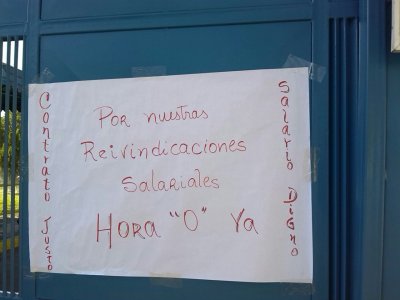 Contrato Justo
Por nuestras
Reivindicaciones
Salariales
HORA "O" Ya
Salario Digno